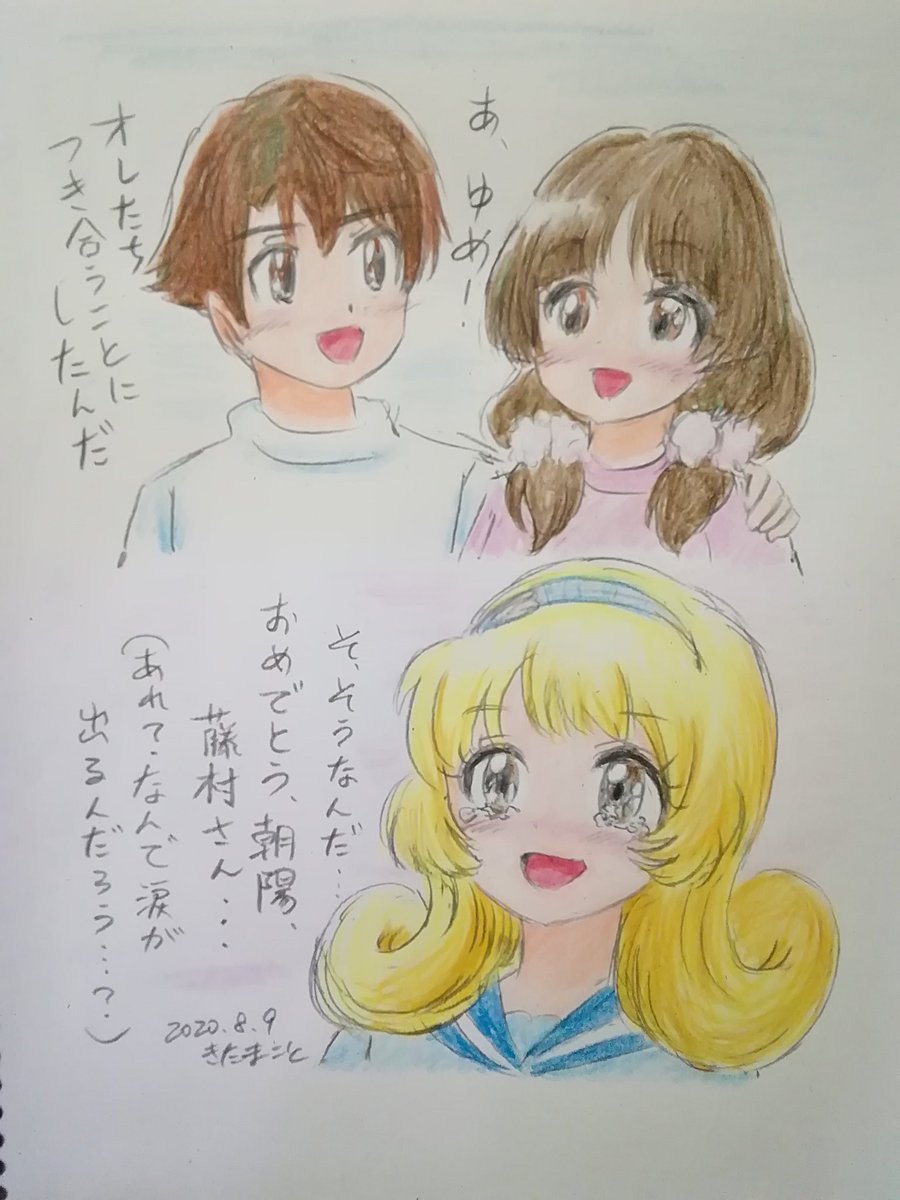 あ、ゆめ!
オレたち
つき合うことに
したんだ
そ、そうなんだ…
おめでとう、朝陽、
藤村さん・・・
(あれ?なんで涙が
出るんだろう…?)
2020.8.9
きたまこと